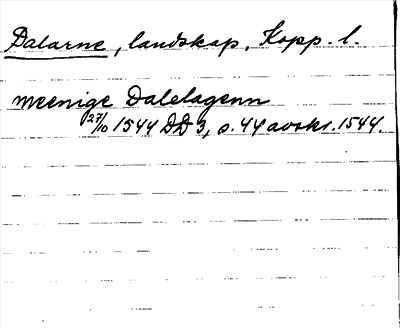 Dalarne, landskap, Kopp. l.
meenige Dalelagenn
27/10 1544 DD 3, s. 44 avskr. 1544.